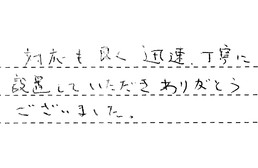 対応も良く迅速、丁寧に
設置していただきありがとう
ございました。